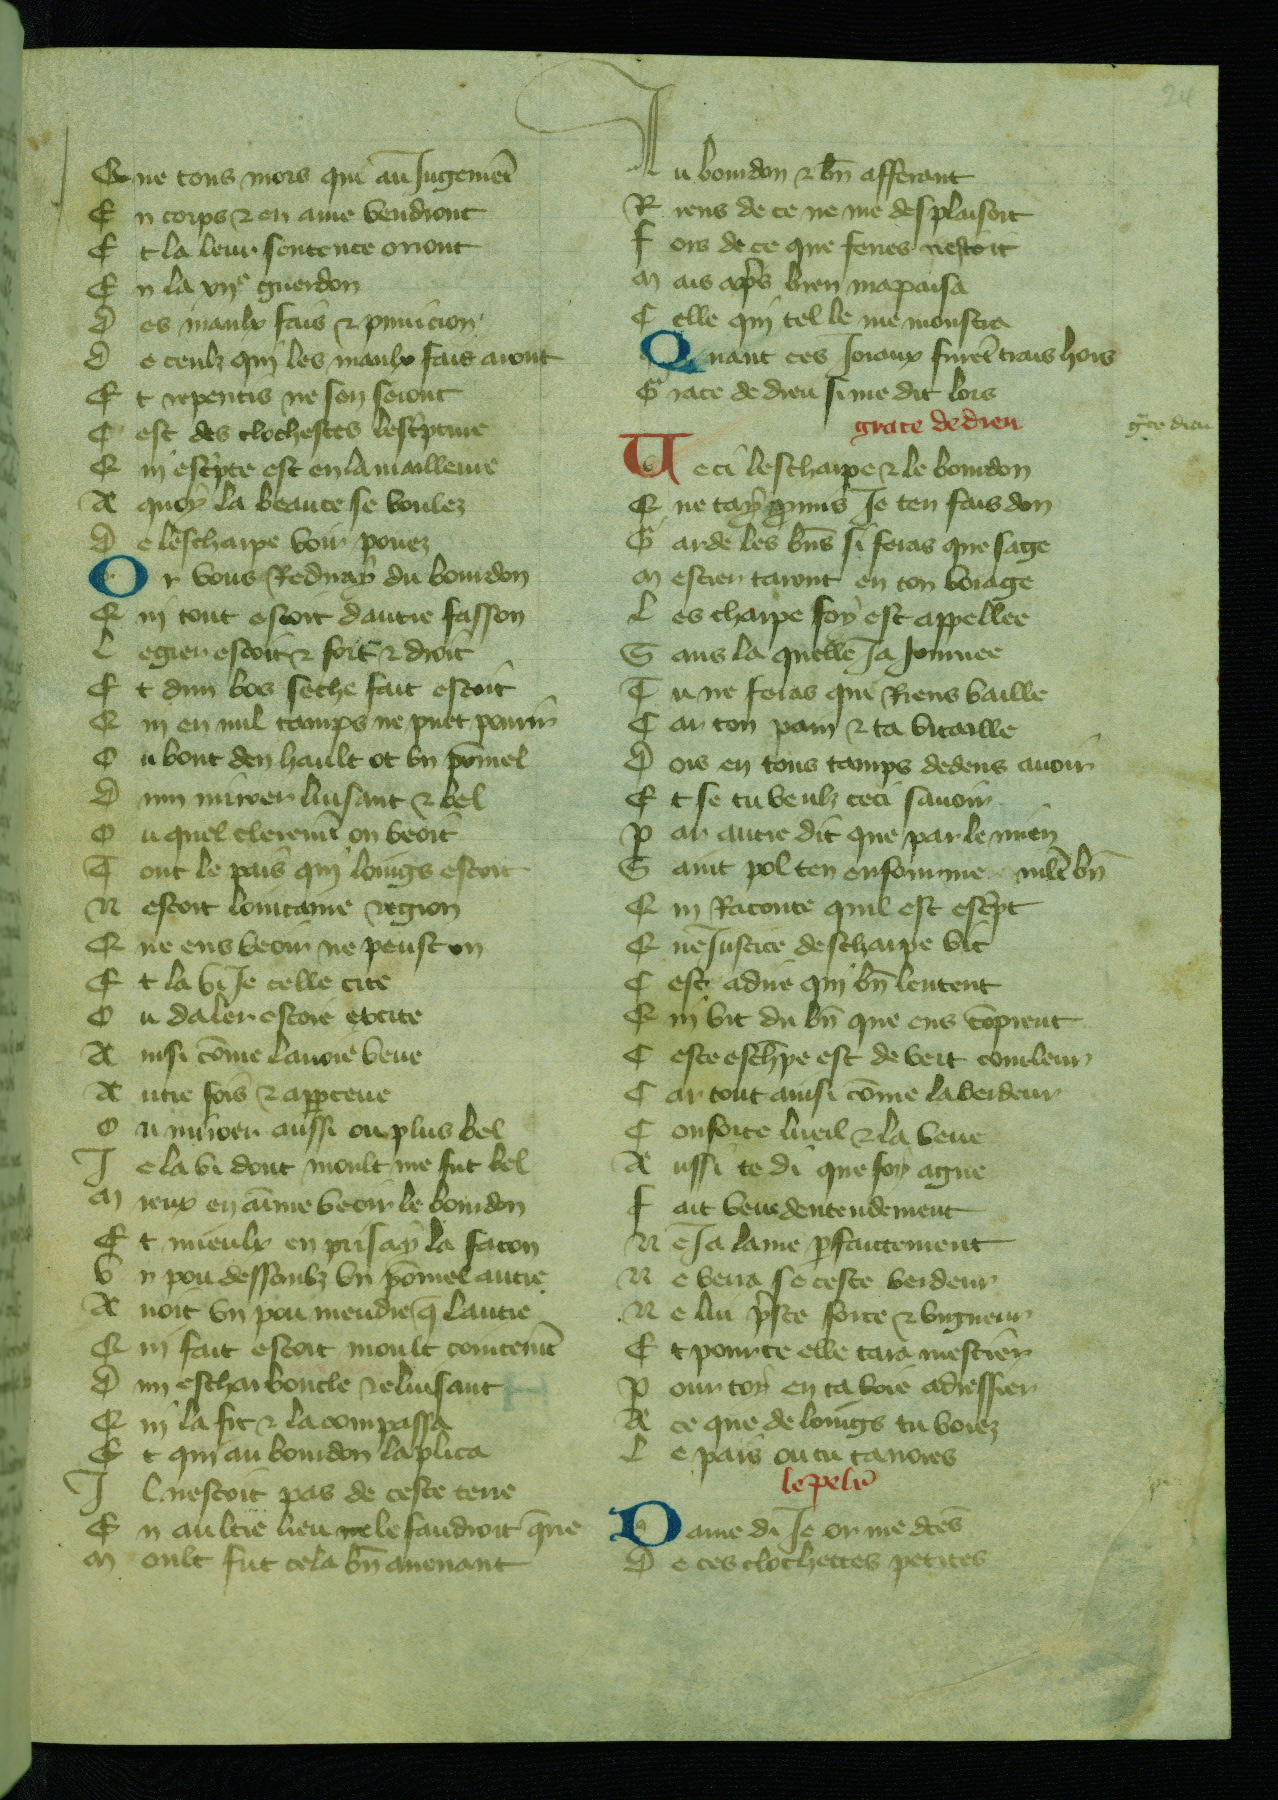 24
Que tous mors qui au Jugemēt
En corps ⁊ en ame vendront
Et la leur sentence oront
En la
guerdon
Des maulx fais ⁊ punicion
De ceulx qui les maulx fais aront
Et repentis ne sen seront
Cest des clochestes lescpture
Qui escpte est en la mailleure
A quoy la beaute se voulez
De lescharpe voir povez
Or vous Rediray du bourdon
Qui tout estoit dautre fasson
Legier estoit ⁊ fort ⁊ droit
Et dun bos seche fait estoit
Qui en nul tamps ne puet pourir
Ou bout den hault ot vn pōmel
Dun miroer luisant ⁊ bel
Ou quel cleremēt on veoit
Tout le pais qui loings estoit
Nestoit lointaine region
Que ens veoir ne peust on
Et la vi Je celle cite
Ou daler estoie excite
Ainsi cōme lavoie veue
Autre fois ⁊ apperceue
Ou miroer aussi ou plus bel
Je la vi dont moult me fut bel
Mieux en aime veoir le bourdon
Et mieulx en prisay la facon
Vn pou dessoubz vn pōmel autre
Avoit vn pou mendre q̄ lautre
Qui fait estoit moult cointemēt
Dun escharboucle reluisant
Qui la fit ⁊ la compassa
Et qui au bourdon laplica
Il nestoit pas de ceste terre
En aultre lieu le faudroit q̄rre
Moult fut cela bn̄ avenant
Au bourdon ⁊ bn̄ afferant
Riens de ce ne me desplaisoit
Fors de ce que ferres nestoit
Mais ap̄s bien mapaisa
Celle qui tel le me monstra
Quant ces Joiaux furēt trais hors
Grace de dieu si me dit lors
grace de dieu
gͬce dieu
Veci lescharpe ⁊ le bourdon
Que tay pmis Je ten fais don
Garde les bn̄s si feras que sage
Mestier taront en ton voiage
Lescharpe foy est appellee
Sans la quelle Ja Journee
Tu ne feras que Riens vaille
Car ton pain ⁊ ta vitaille
Dois en tous tamps dedens avoir
Et se tu veulz ceci savoir
Par autre dit que par le mien
Saint pol ten enforme mlt bn̄
Qui Raconte quil est escpt
Que Justice descharpe vit
Cest adire qui bn̄ lentent
Qui vit du bn̄ que ens cōprent
Ceste escharpe est de vert couleur
Car tout ainsi cōme la verdeur
Conforte lueil ⁊ la veue
Aussi te di que foy ague
Fait veue dentendement
Ne Ja lame pfaictement
Ne verra se ceste verdeur
Ne lui pste force ⁊ vigueur
Et pource elle tara mestier
Pour toy en ta voie adressier
A ce que de loings tu voiez
Le pais ou tu tavoies
le peleͬ
Dame di Je or me dc̄es
De ces clochettes petites